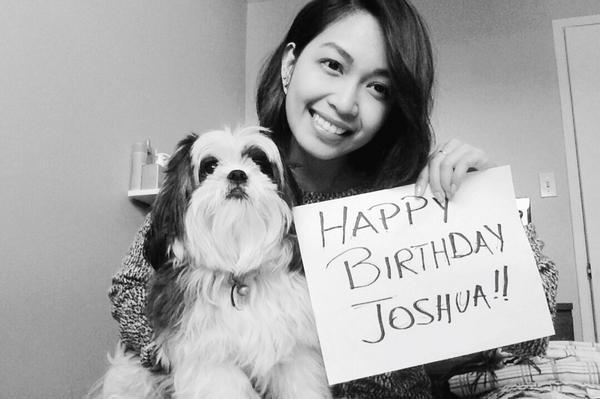 HAPPY
BIRTHDAY
JOSHUA!!